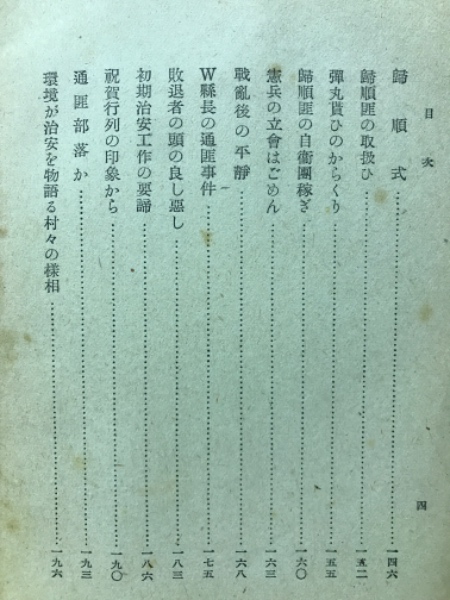 目次
歸順式…………一四六
歸順匪の取扱ひ…………一五二
彈丸貰ひのからくり…………一五五
歸順匪の自衞團稼ぎ…………一六〇
憲兵の立會はごめん…………一六三
戰亂後の平靜…………一六八
W縣長の通匪事件…………一七五
敗退者の頭の良し惡し…………一八三
初期治安工作の要諦…………一八六
祝賀行列の印象から…………一九〇
通匪部落か…………一九三
環境が治安を物語る村々の樣相…………一九六
四